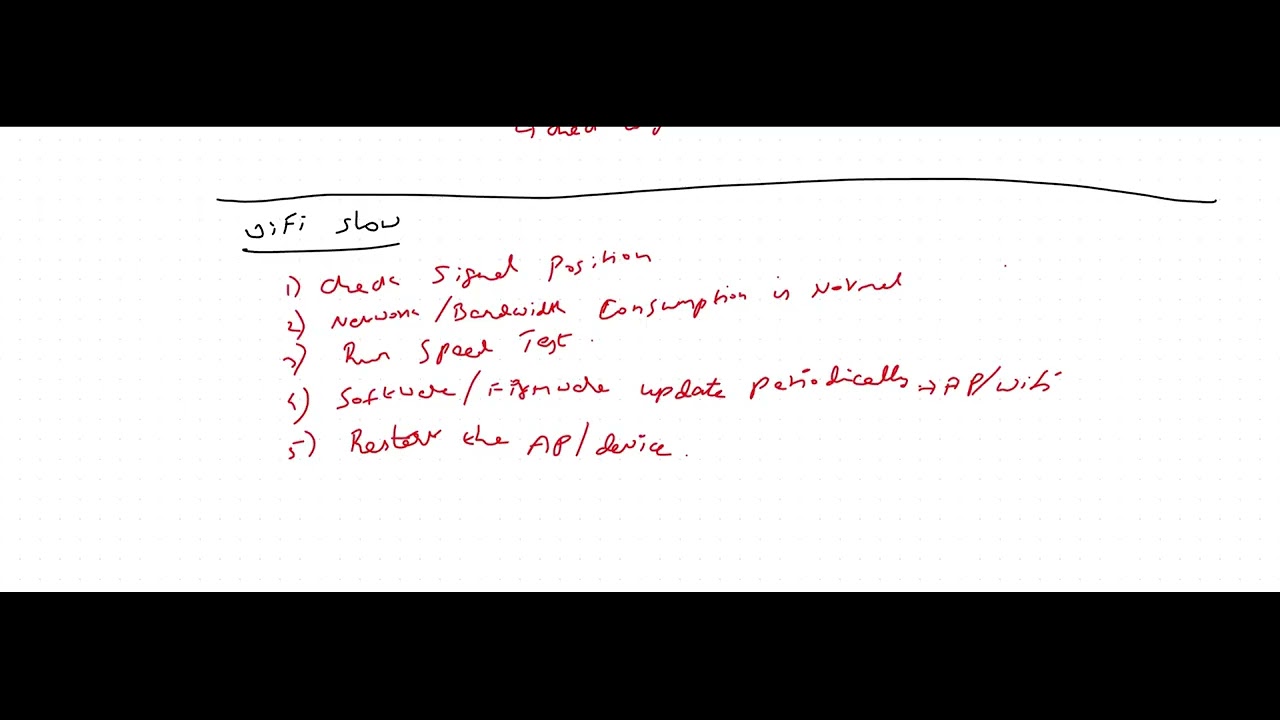 WiFi slow
1) Check Signal Position
2) Network/Bandwidth Consumption is Normal
3) Run Speed Test
4) Software/Firmware update periodically → AP/wifi
5) Restart the AP/device.